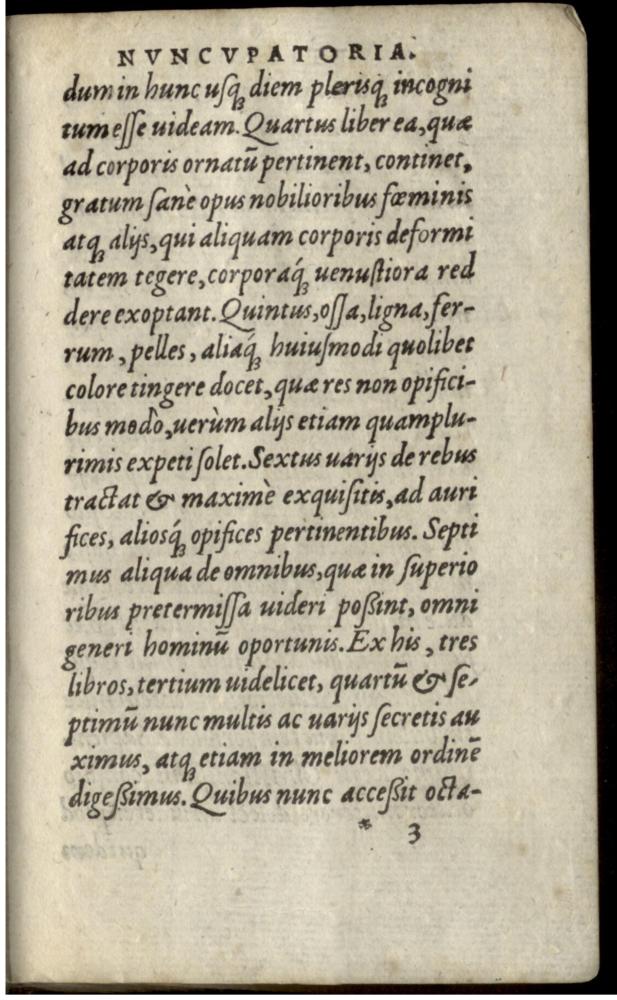 NVNCVPATORIA.
dum in hunc uſq́ꝫ diem plerisq́ꝫ incogni
tum eſſe uideam. Quartus liber ea, quæ
ad corporis ornatũ pertinent, continet,
gratum ſanè opus nobilioribus fœminis
atqꝫ alijs, qui aliquam corporis deformi
tatem tegere, corporaq́ꝫ uenuſtiora red
dere exoptant. Quintus, oſſa, ligna, fer-
rum, pelles, aliaq́ꝫ huiuſmodi quolibet
colore tingere docet, quæ res non opifici-
bus modò, uerùm alijs etiam quamplu-
rimis expeti ſolet. Sextus uarijs de rebus
tractat & maximè exquiſitis, ad auri
fices, aliosq́ꝫ opifices pertinentibus. Septi
mus aliqua de omnibus, quæ in ſuperio
ribus pretermiſſa uideri poßint, omni
generi hominũ oportunis. Ex his, tres
libros, tertium uidelicet, quartũ & ſe-
ptimũ nunc multis ac uarijs ſecretis au
ximus, atqꝫ etiam in meliorem ordinẽ
digeßimus. Quibus nunc acceßit octa-
* 3